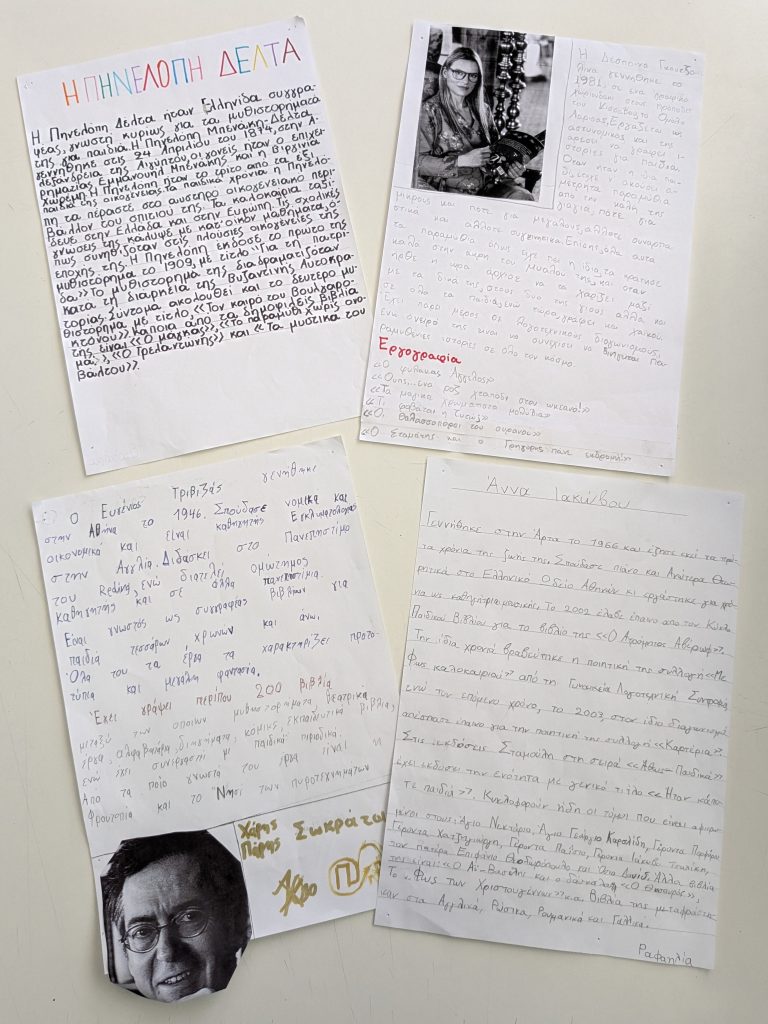 Η ΠΗΝΕΛΟΠΗ ΔΕΛΤΑ
Η Πηνελόπη Δέλτα ήταν Ελληνίδα συγγρα-
φέας, γνωστή κυρίως για τα μυθιστορήματα
της για παιδιά. Η Πηνελόπη Μπενάκη-Δέλτα
γεννήθηκε στις 24 Απριλίου του 1874, στην Α-
λεξάνδρεια της Αιγύπτου. Οι γονείς ήταν ο επιχει-
ρηματίας Εμμανουήλ Μπενάκης και η Βιργινία
Χωρέμη. Η Πηνελόπη ήταν το τρίτο από τα έξι
παιδιά της οικογένειας. Τα παιδικά χρόνια η Πηνελό-
πη τα πέρασε στο αυστηρό οικογενειακό περι-
βάλλον του σπιτιού της. Τα καλοκαίρια ταξί-
δευε στην Ελλάδα και στην Ευρώπη. Τις σχολικές
γνώσεις της κάλυψε με κατ'οίκον μαθήματα, ό-
πως συνηθιζόταν στις πλούσιες οικογένειες της
εποχής της. Η Πηνελόπη έκδοσε το πρώτο της
μυθιστόρημα το 1909, με τίτλο «Για τη πατρί-
δα.» Το μυθιστόρημα της διαδραματιζόταν
κατά τη διάρκεια της Βυζαντινής Αυτοκρα-
τορίας. Σύντομα ακολουθεί και το δεύτερο μυ-
θιστόρημα με τίτλο, «Τον καιρό του Βουλγαρο-
κτόνου». Κάποια από τα δημοφιλείς βιβλία
της είναι «Ο μάγκας», «Το παραμύθι χωρίς όνο-
μα», «Ο Τρελαντώνης» και «Τα μυστικά του
Βάλτου».
Η Δέσποινα
γεννήθηκε το
1981, σε ένα όμορφο
στους πρόποδες
του Κισσάβου
Λάρισας. Εργάζεται ως
αστυνομικός και της
αρέσει να γράφει ι-
στορίες για παιδιά.
Όταν ήταν η ίδια παι-
άκουσε α-
μέτρητα παραμύθια
από την καλή της
γιαγιά, πότε για
μικρούς και πότε για μεγάλους, άλλοτε συναρπα-
στικά και άλλοτε συγκινητικά. Επίσης, όλα αυτά
τα παραμύθια όπως έχει πει η ίδια, τα κράτησε
καλά στην άκρη του μυαλού της, και όταν
ήρθε η ώρα άρχισε να τα χαρίζει μαζί
με τα δικά της, στους δύο της γιους αλλά και
σε όλα τα παιδιά, ενώ τώρα γράφει και χαϊκού.
Έχει πάρει μέρος σε λογοτεχνικούς διαγωνισμούς,
ενώ όνειρό της είναι να συνεχίσει να διηγείται πα-
ραμυθένιες ιστορίες σε όλο τον κόσμο.
Εργογραφία
«Ο φύλακας Άγγελος»
«Ουπς...ένα ροζ χταπόδι στον ωκεανό!»
«Τα μαγικά χρωματιστά μολύβια»
«Τι φοβάται η Ζωζώ;»
«Οι θαλασσοπόροι του ουρανού»
«Ο Σταμάτης και ο Γρηγόρης πάνε εκδρομή»
Ο Ευγένιος Τριβιζάς γεννήθηκε
στην Αθήνα το 1946. Σπούδασε νομικά και
οικονομικά και είναι καθηγητής Εγκληματολογίας
στην Αγγλία. Διδάσκει στο Πανεπηστίμο
του Reding, ενώ διατελεί ομώτημος
καθηγητής και σε άλλα πανεπιστίμια.
Είναι γνωστός ως συγραφέας βιβλίων για
παιδιά τεσσάρων χρωνών και άνω.
Όλα του τα έργα τα χαρακτηρίζει προτο-
τυπία και μεγάλη φαντασία.
Έχει γράψει περίπου 200 βιβλία
μεταξύ των οποίων μυθιστορήματα, θεατρικα
έργα, αλφαβητάρια, διηγήματα, κόμικς, εκπαιδευτικά βιβλία,
ενώ έχει συνεργαστεί με παιδικά περιοδικά.
Από τα ποιό γνωστά του έργα είναι η
Φρουτοπία και το Νησί των πυροτεχνημάτων
Χάρης Σωκράτ
Πάρης
Άννα Ιακώβου
Γεννήθηκε στην Άρτα το 1966 και έζησε εκεί τα πρώ-
τα χρόνια της ζωής της. Σπούδασε πιάνο και Ανώτερα Θεω-
ρητικά στο Ελληνικό Ωδείο Αθηνών κι εργάστηκε για χρό-
νια ως καθηγήτρια μουσικής. Το 2002 έλαβε έπαινο από τον Κύκλο
Παιδικού Βιβλίου για το βιβλίο της «Ο Ατρόμητος Αβέρωφ».
Την ίδια χρονιά βραβεύτηκε η ποιητική της συλλογή «Με
Φως καλοκαιριού» από τη Γυναικεία Λογοτεχνική Συντροφιά
ενώ τον επόμενο χρόνο, το 2003, στον ίδιο διαγωνισμό
απέσπασε έπαινο για την ποιητική της συλλογή «Καρτέρια».
Στις εκδόσεις Σταμούλη στη σειρά «Άθως Παιδικά»
έχει εκδώσει την ενότητα με γενικό τίτλο «Ήταν κάπο-
τε παιδιά». Κυκλοφορούν ήδη οι τόμοι που είναι αφιερω-
μένοι στους: Άγιο Νεκτάριο, Άγιο Γεώργιο Καρσλίδη, Γέροντα Πορφύριο
Γέροντα Χατζηγιώργη, Γέροντα Παΐσιο, Γέροντα Ιάκωβο Τσαλίκη,
τον πατέρα Επιφάνιο Θεοδωρόπουλο και Όσιο Δαυίδ. Άλλα βιβλία
της είναι: «Ο Αϊ-Βασίλης και ο δάσκαλος», «Ο Θησαυρός»,
Το «Φως των Χριστουγέννων» κ.α. Βιβλία της μεταφράστη-
καν στα Αγγλικά, Ρώσικα, Ρουμανικά και Γαλλικά.
Ραφαηλία